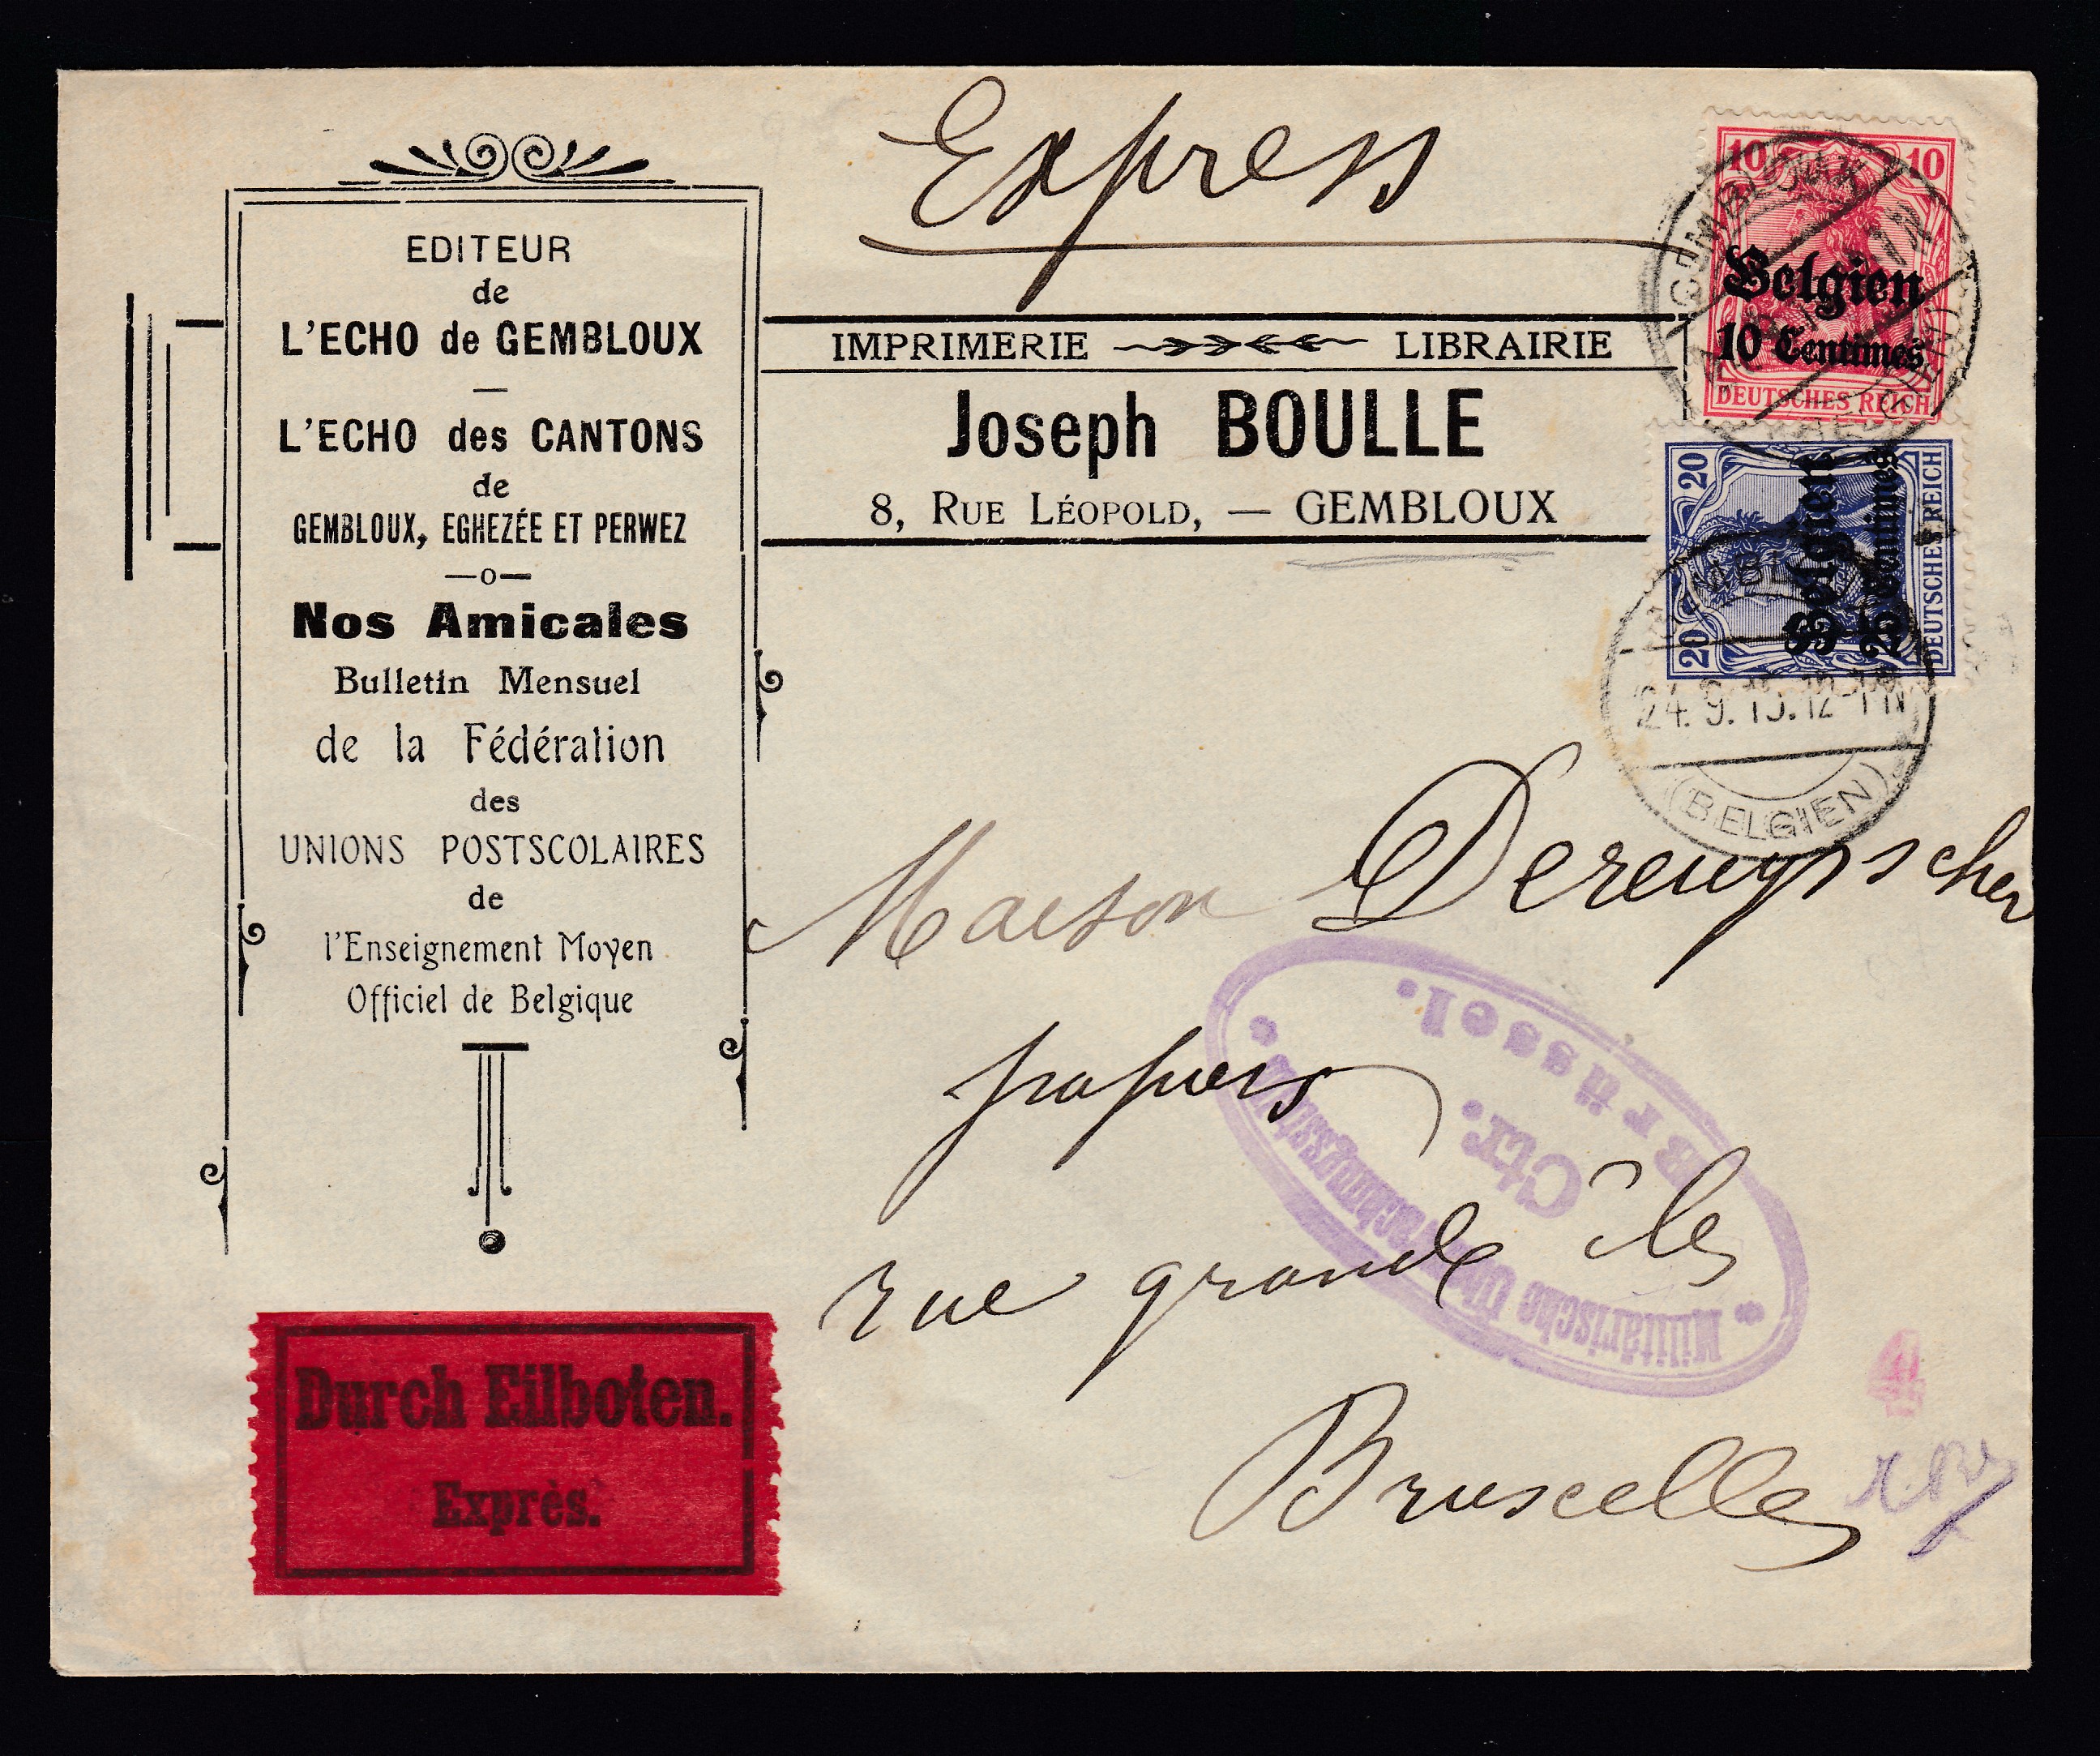 Express
EDITEUR
de
L'ECHO de GEMBLOUX
L'ECHO des CANTONS
de
GEMBLOUX, EGHEZÉE ET PERWEZ
Nos Amicales
Bulletin Mensuel
de la Fédération
des
UNIONS POSTSCOLAIRES
de
l'Enseignement Moyen
Officiel de Belgique
IMPRIMERIE LIBRAIRIE
Joseph BOULLE
8, RUE LÉOPOLD, — GEMBLOUX
10 10
Belgien
10 Centimes
DEUTSCHES REICH
GEMBLOUX
20 20
Belgien
25 Centimes
DEUTSCHES REICH
24. 9. 15. 12-1 N
(BELGIEN)
Maison Dereuysscher
papiers
rue grande île
Bruxelles
Militärische Überwachungsstelle
Ctr.
Brüssel.
Durch Eilboten.
Exprès.
4